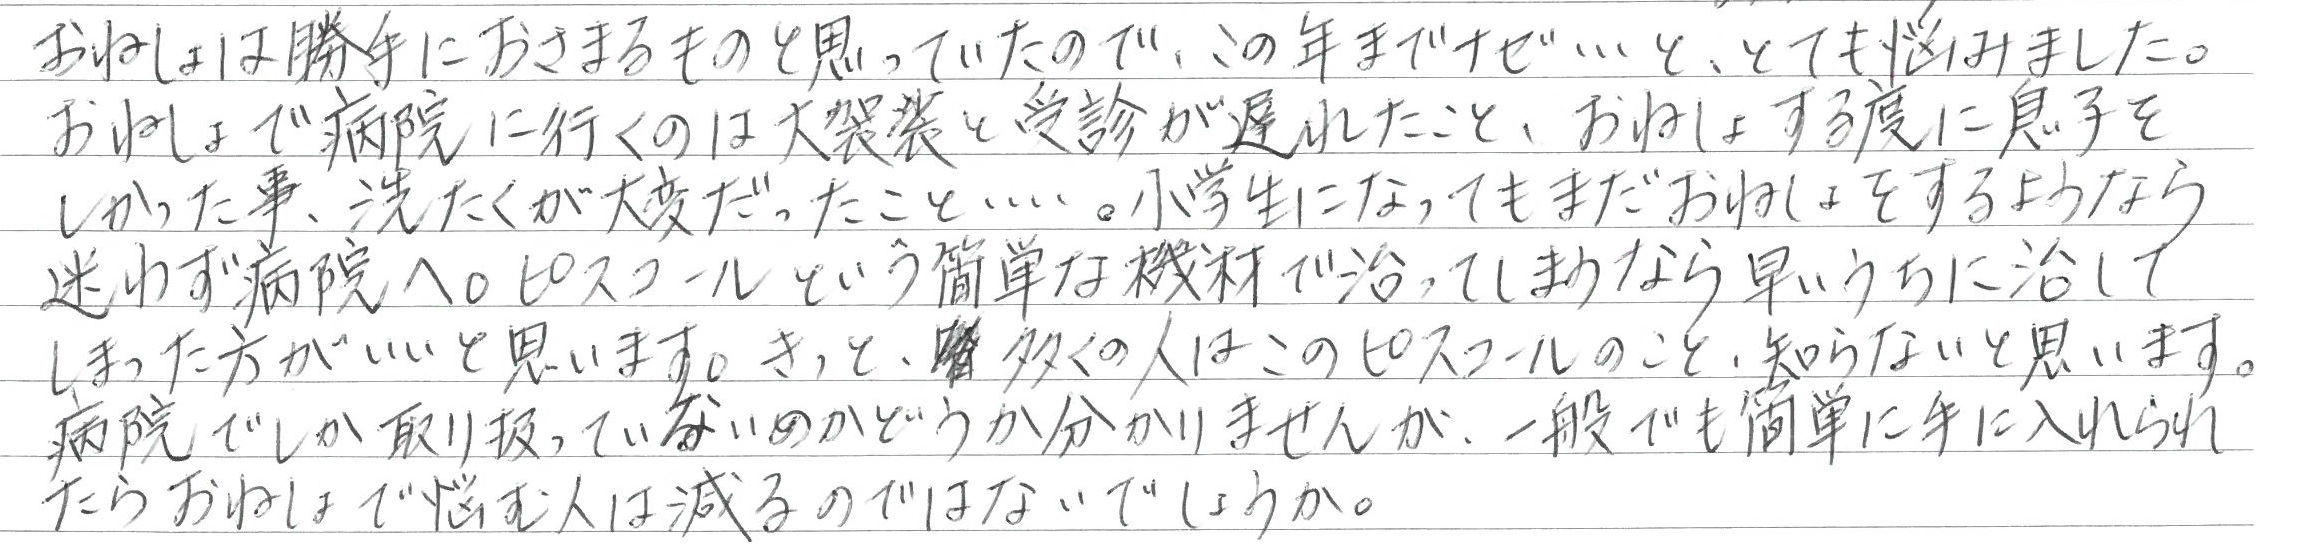 おねしょは勝手におさまるものと思っていたので、この年までナゼ…と、とても悩みました。
おねしょで病院に行くのは大袈裟と受診が遅れたこと、おねしょする度に息子を
しかった事、洗たくが大変だったこと‥‥。小学生になってもまだおねしょをするようなら
迷わず病院へ。ピスコールという簡単な機材で治ってしまうなら早いうちに治して
しまった方がいいと思います。きっと、多くの人はこのピスコールのこと、知らないと思います。
病院でしか取り扱っていないのかどうか分かりませんが、一般でも簡単に手に入れられ
たらおねしょで悩む人は減るのではないでしょうか。